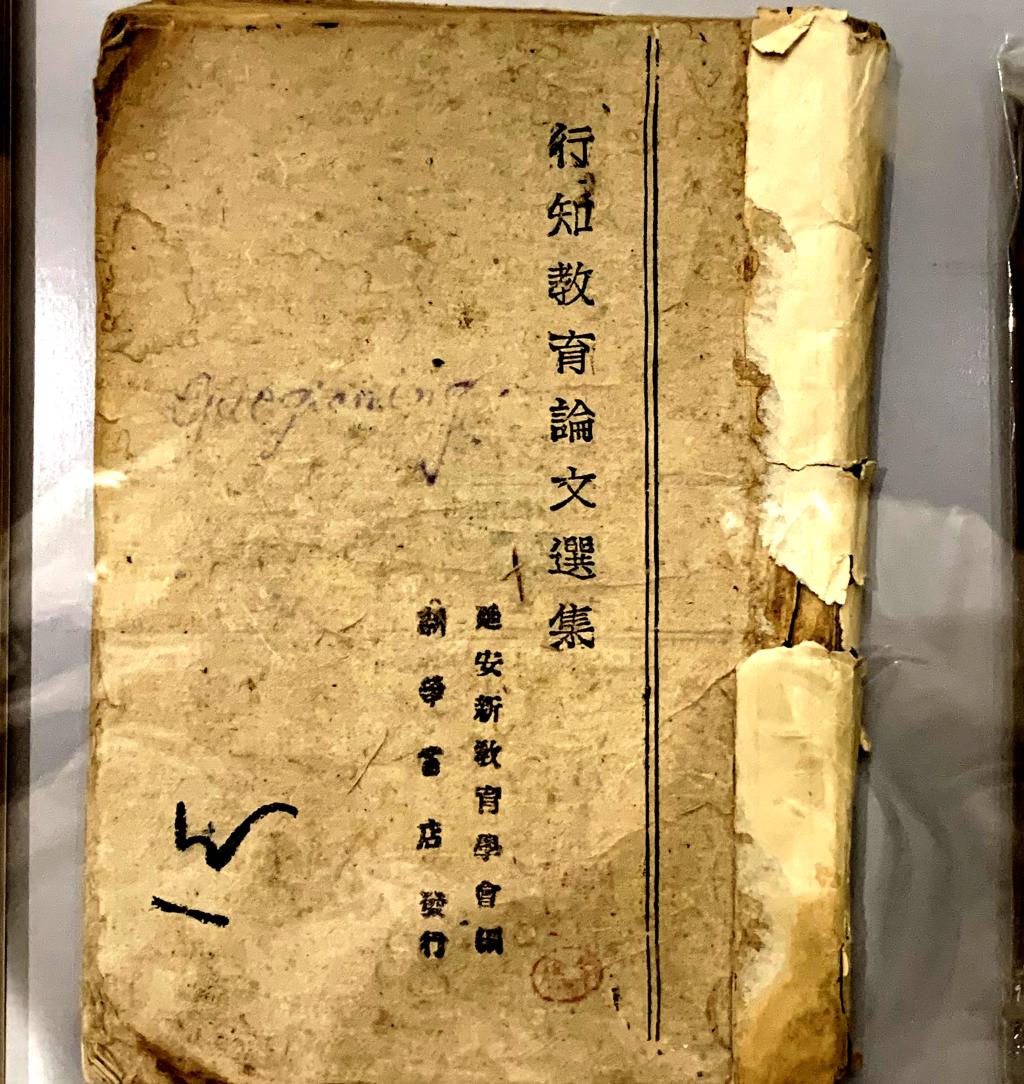 行知教育論文選集
延安新教育學會編
書店發行